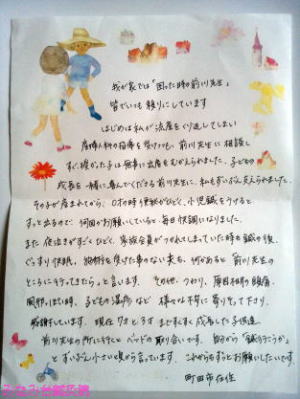 我が家では「困った時の前川先生」
皆でいつも頼りにしています
はじめは私が流産をくり返してしまい
産婦人科の指導を受けつつ、前川先生に相談し
すぐ授かった子は無事に出産をむかえられました。子どもの
成長を一緒に喜んでくださる前川先生に、私もずいぶん支えられました。
その子が産まれてから、0才の時 便秘がひどく、小児鍼をうけると
すっと出るので、何回かお願いしていると毎日快調になりました。
また 夜泣きがすごくひどく、家族全員がつかれてしまっていた時も鍼の後、
ぐっすり快眠。施術を受けた事のない夫も、何かあると 前川先生の
ところに行ってきたら。と言います。その他、つわり、腰痛
風邪っぽい時、子どもの湿疹など 様々な不調に寄りそって下さり
感謝しています。現在 7才と3才 まですくすく成長した子供達
前川先生の所に行くと ベッドの取り合いです。朝から「鍼を行こうか」
とずいぶん小さい頃から言っています。これからもずっとお願いしたいです。
町田市在住
みなみ台鍼灸院